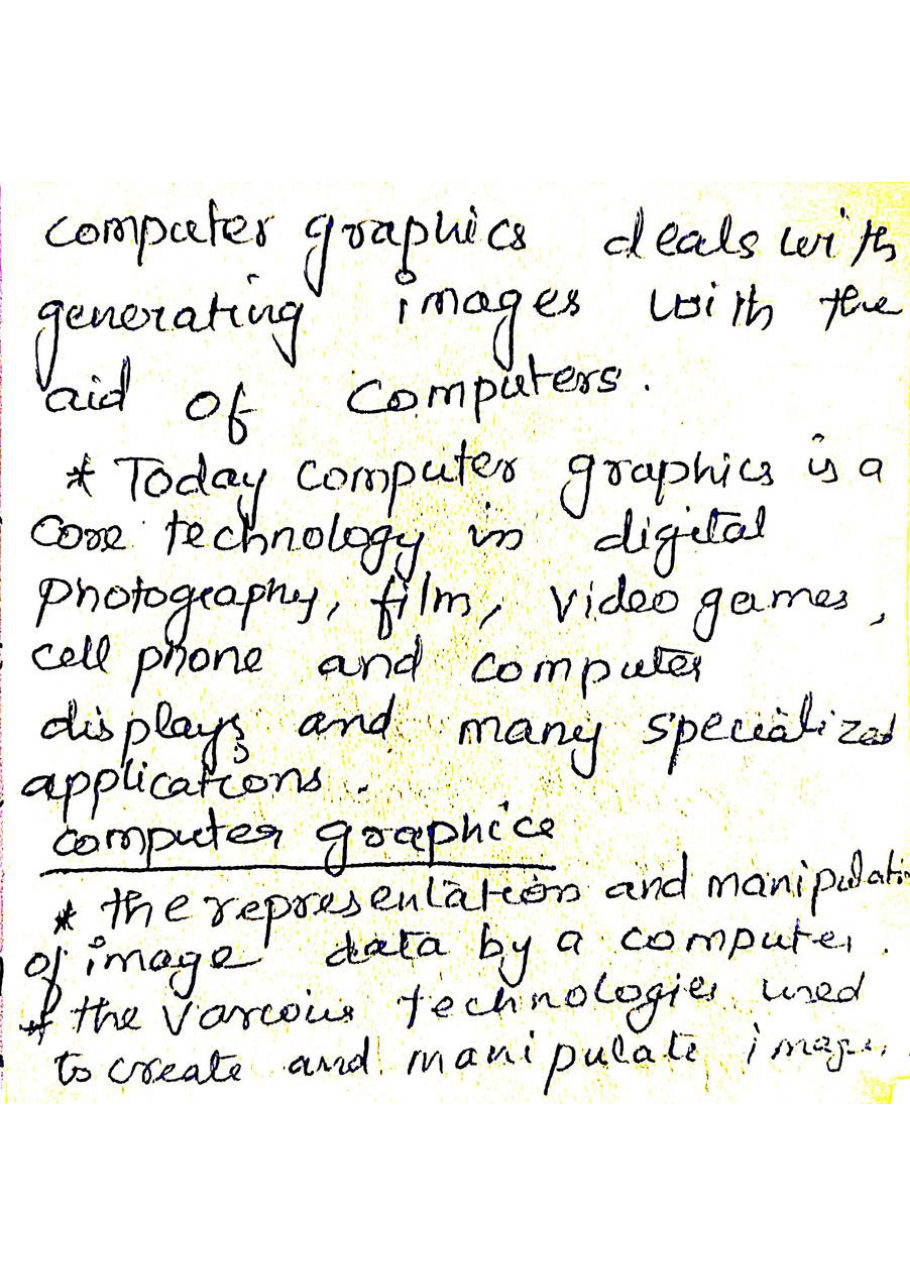 computer graphics deals with
generating images with the
aid of Computers.
* Today computer graphics is a
Core technology in digital
photography, film, video games,
cell phone and computer
displays and many specialized
applications.
computer graphics
* the representation and manipulati
of image data by a computer.
* the various technologies used
to create and manipulate images.